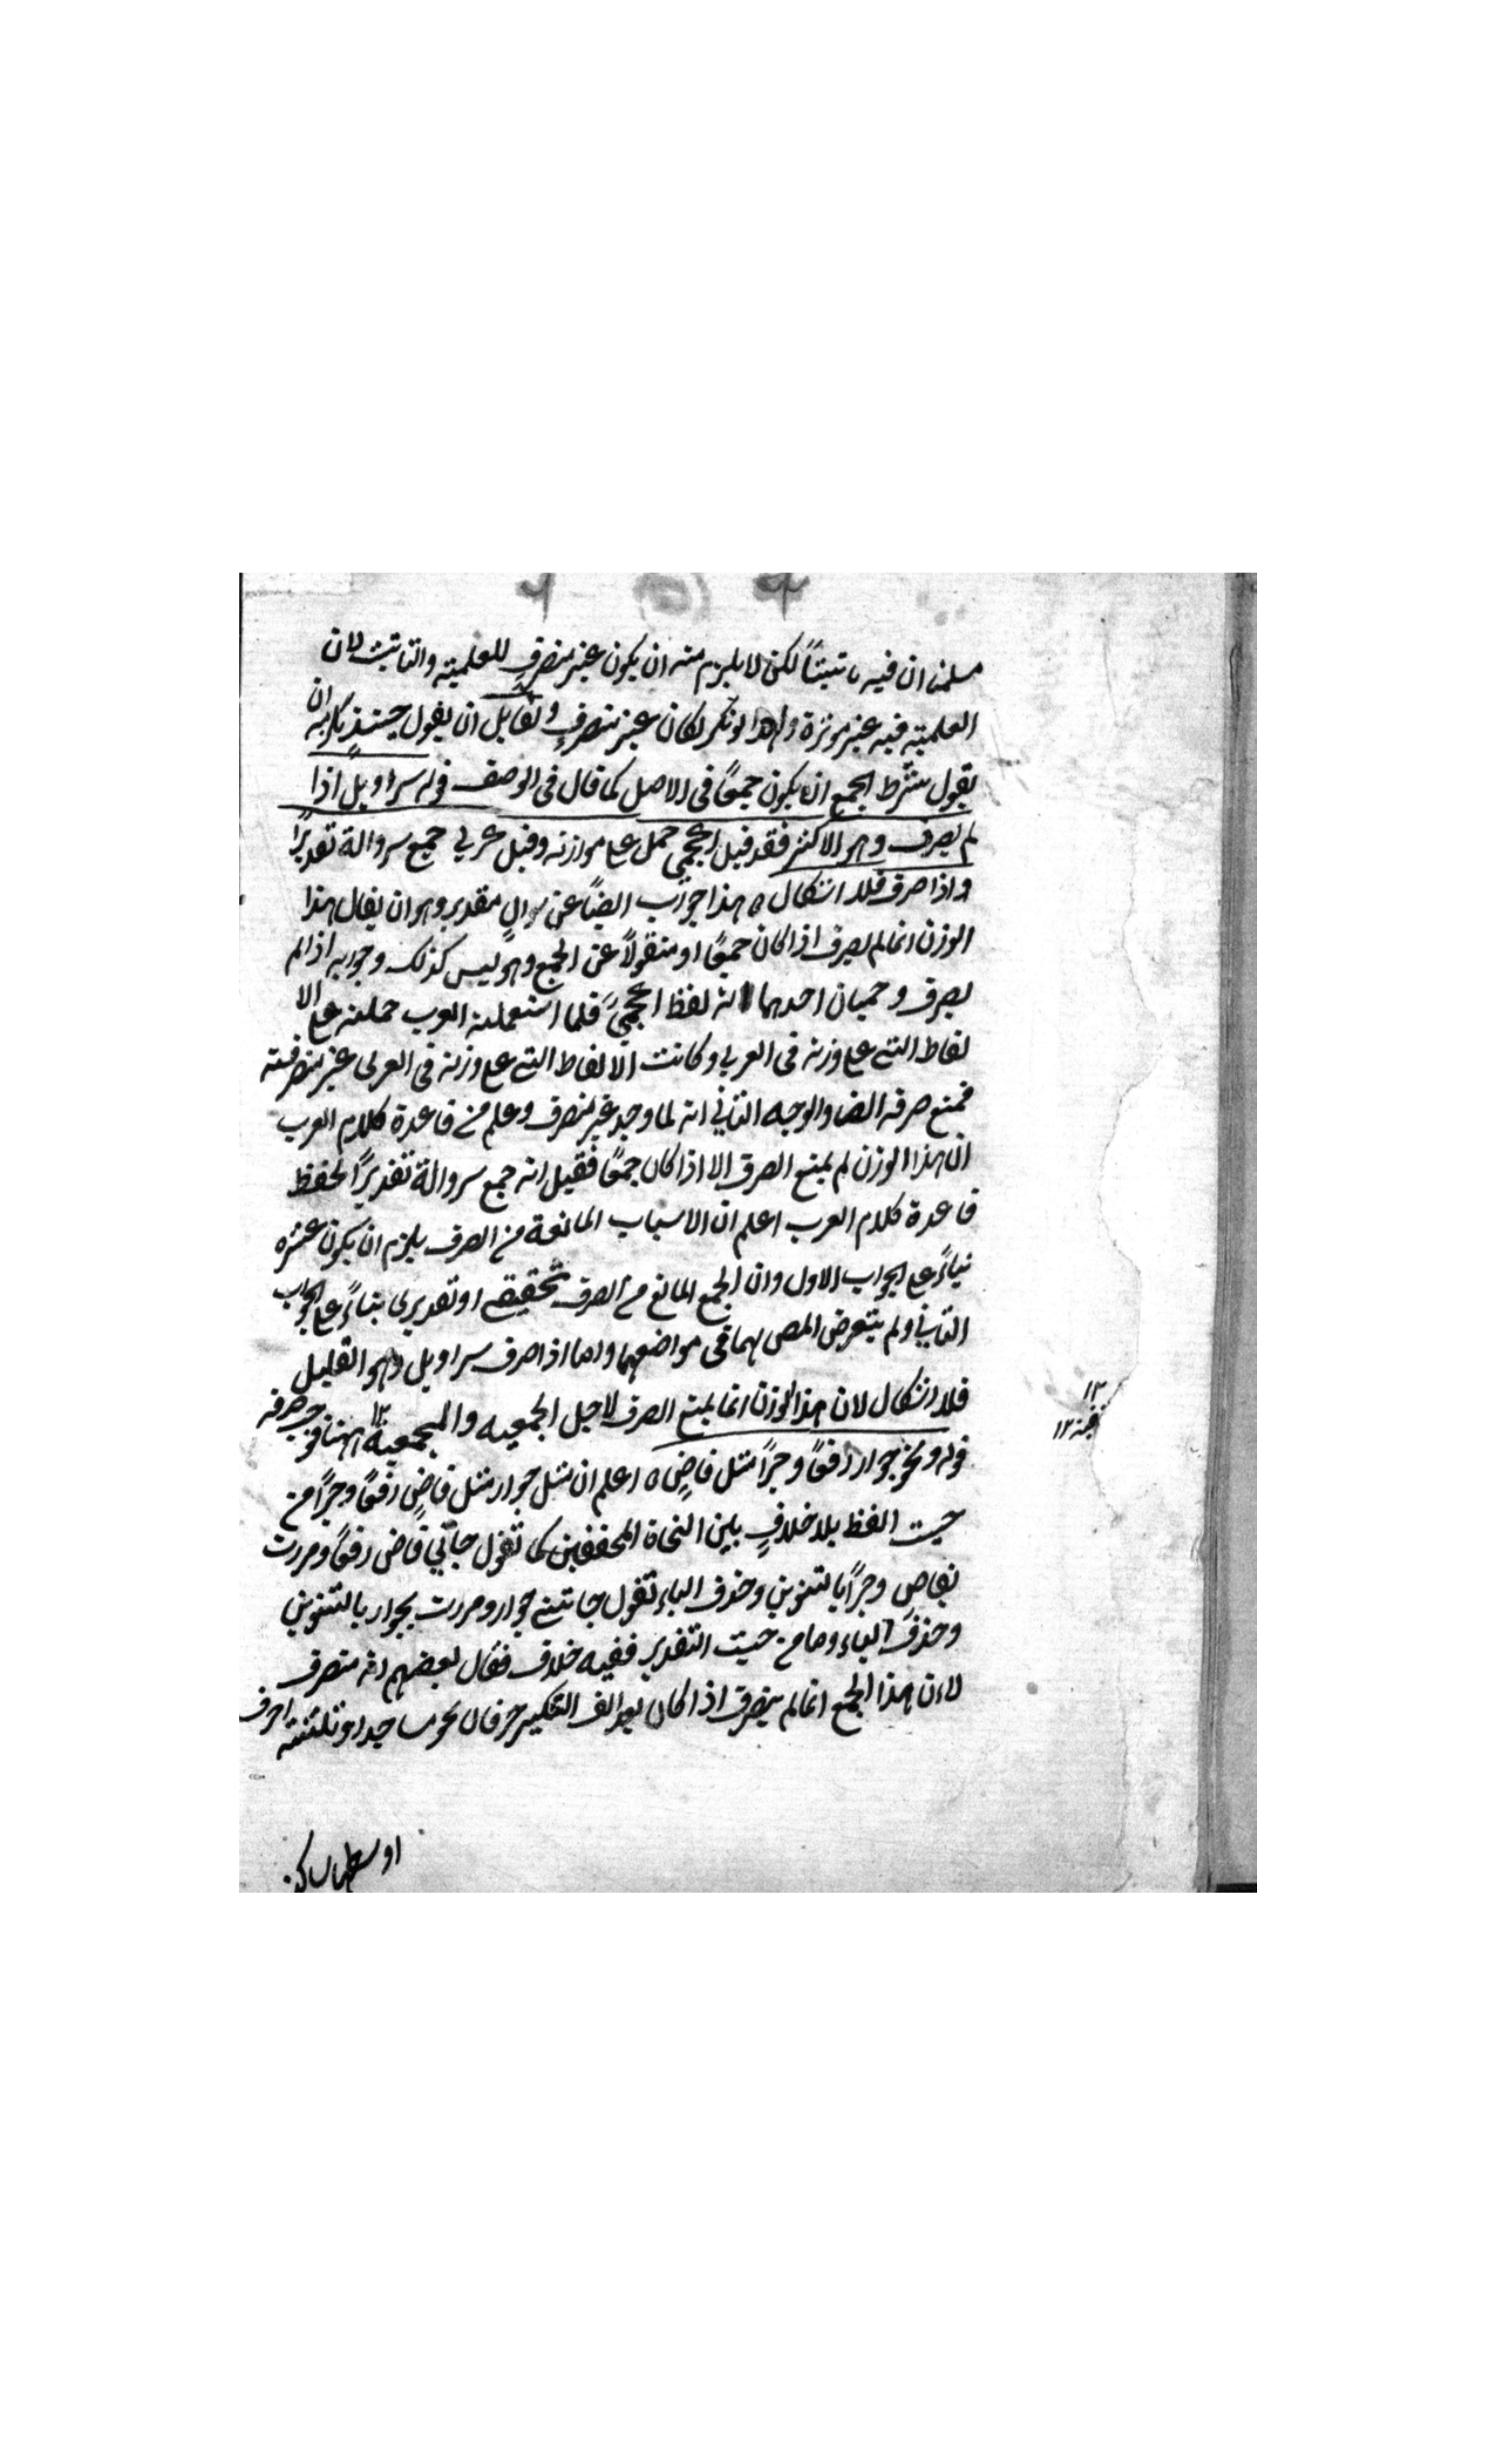 سلمنا ان فيه تانيثاً لكن لا يلزم منه ان يكون غير منصرف للعلمية والتانيث لان
العلمية فيه غير موثرة ولهذا لو نكر لكان غير منصرف ولقايل ان يقول حينئذ يلزمه ان
يقول شرط الجمع ان يكون جمعاً فى الاصل كما قال فى الوصف قوله سراويل اذا
لم يصرف وهو الاكثر فقد قيل اعجمى حمل على موازنه وقيل عربي جمع سروالة تقديراً
واذا صرف فلا اشكال ه هذا جواب ايضاً عن سوال مقدر وهو ان يقال هذا
الوزن انما لم يصرف اذا كان جمعاً او منقولاً عن الجمع وهو ليس كذلك وجوابه اذا لم
يصرف وجهان احدهما انه لفظ اعجمى فلما استعملته العرب حملته على الا
لفاظ التي على وزنه فى العربي وكانت الالفاظ التي على وزنه فى العربى غير منصرفة
فمنع صرفه ايضا والوجه الثاني انه لما وجد غير منصرف وعلم من قاعدة كلام العرب
ان هذا الوزن لم يمنع الصرف الا اذا كان جمعاً فقيل انه جمع سروالة تقديراً لحفظ
قاعدة كلام العرب اعلم ان الاسباب المانعة من الصرف يلزم ان يكون عشره
بناءً على الجواب الاول وان الجمع المانع من الصرف تحقيقى او تقديرى بناءً على الجواب
الثاني ولم يتعرض المص لهما فى مواضعهما واما اذا صرف سراويل وهو القليل
فلا اشكال لان هذا الوزن انما يمنع الصرف لاجل الجمعيه ولا جمعية ههنا
قوله ونحو جوار رفعاً وجراً مثل قاضٍ ه اعلم ان مثل جوار مثل قاضٍ رفعاً وجراً من
حيث اللفظ بلا خلافٍ بين النحاة المحققين كما تقول جائني قاض رفعاً ومررت
بقاضٍ وجراً بالتنوين وحذف الياء تقول جائتني جوار ومررت بجوار بالتنوين
وحذف الياء واما من حيث التقدير ففيه خلاف فقال بعضهم انه منصرف
لان هذا الجمع انما لم ينصرف اذا كان بعد الف التكسير حرفان نحو مساجد او ثلثة احرف
اوسطها ساكن